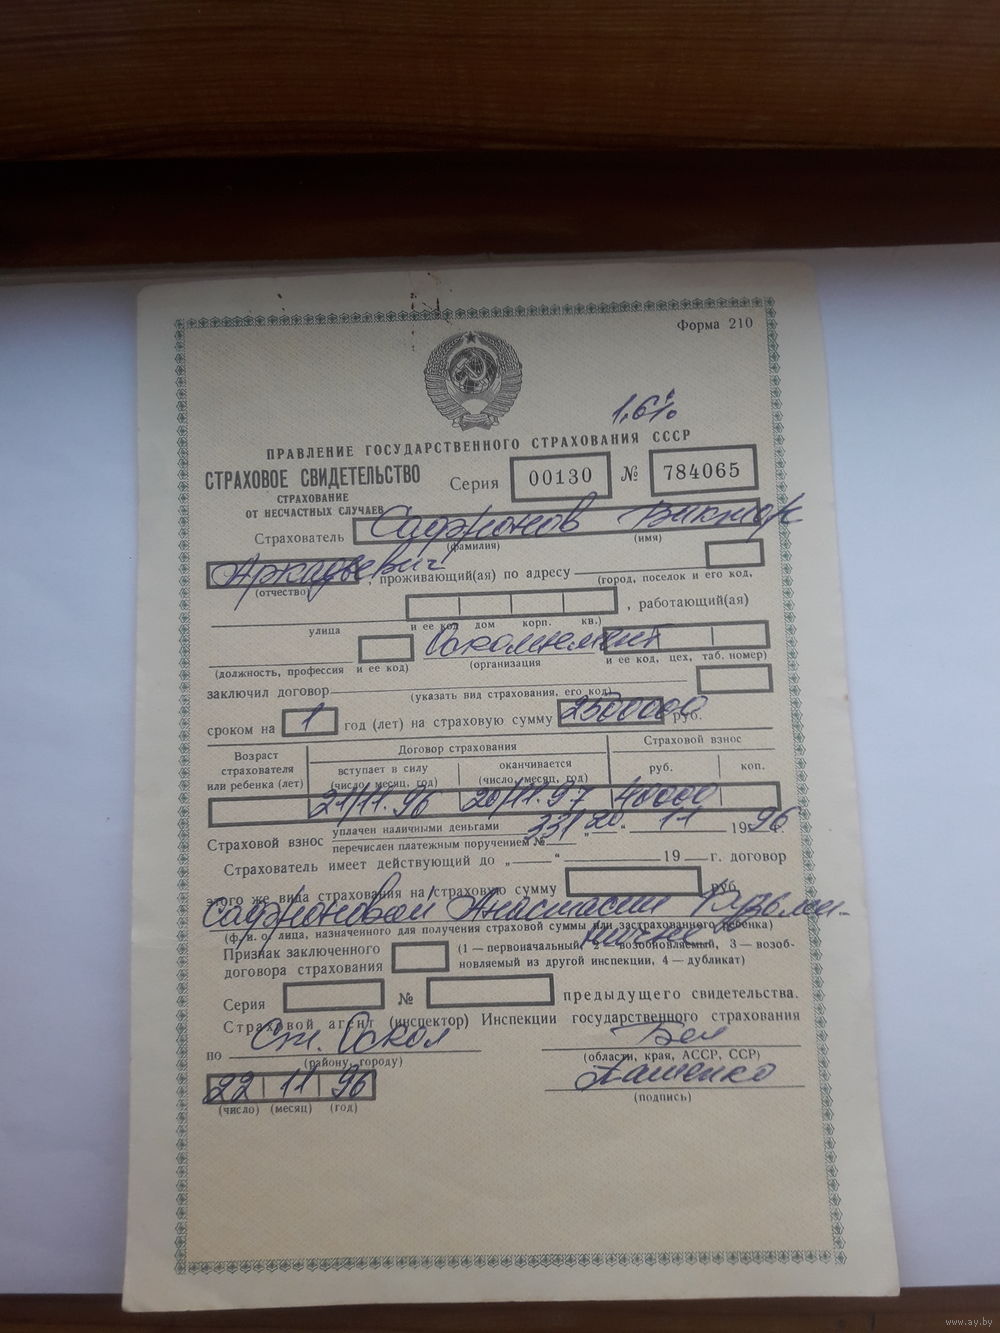 Форма 210
1,6%
ПРАВЛЕНИЕ ГОСУДАРСТВЕННОГО СТРАХОВАНИЯ СССР
СТРАХОВОЕ СВИДЕТЕЛЬСТВО Серия 00130 № 784065
СТРАХОВАНИЕ
ОТ НЕСЧАСТНЫХ СЛУЧАЕВ
Страхователь Сафронов Виктор
(фамилия) (имя)
Аркадьевич , проживающий(ая) по адресу
(отчество) (город, поселок и его код,
, работающий(ая)
улица и ее код дом корп. кв.)
(должность, профессия и ее код) (организация и ее код, цех, таб. номер)
заключил договор
(указать вид страхования, его код)
сроком на 1 год (лет) на страховую сумму 2500000 руб.
Возраст страхователя или ребенка (лет) Договор страхования Страховой взнос
вступает в силу (число, месяц, год) оканчивается (число, месяц, год) руб. коп.
21/11.96 20/11.97 40000
Страховой взнос уплачен наличными деньгами
перечислен платежным поручением № 331 „20“ 11 1996 г.
Страхователь имеет действующий до „ “ 19 г. договор
этого же вида страхования на страховую сумму руб.
Сафроновой Анастасии Кузьми-
ничне
(ф. и. о. лица, назначенного для получения страховой суммы или застрахованного ребенка)
Признак заключенного договора страхования (1 — первоначальный, 2 — возобновляемый, 3 — возоб-
новляемый из другой инспекции, 4 — дубликат)
Серия № предыдущего свидетельства.
Страховой агент (инспектор) Инспекции государственного страхования
по Ст. Оскол Бел
(району, городу) (области, края, АССР, ССР)
22 11 96 Пащенко
(число) (месяц) (год) (подпись)
www.ay.by